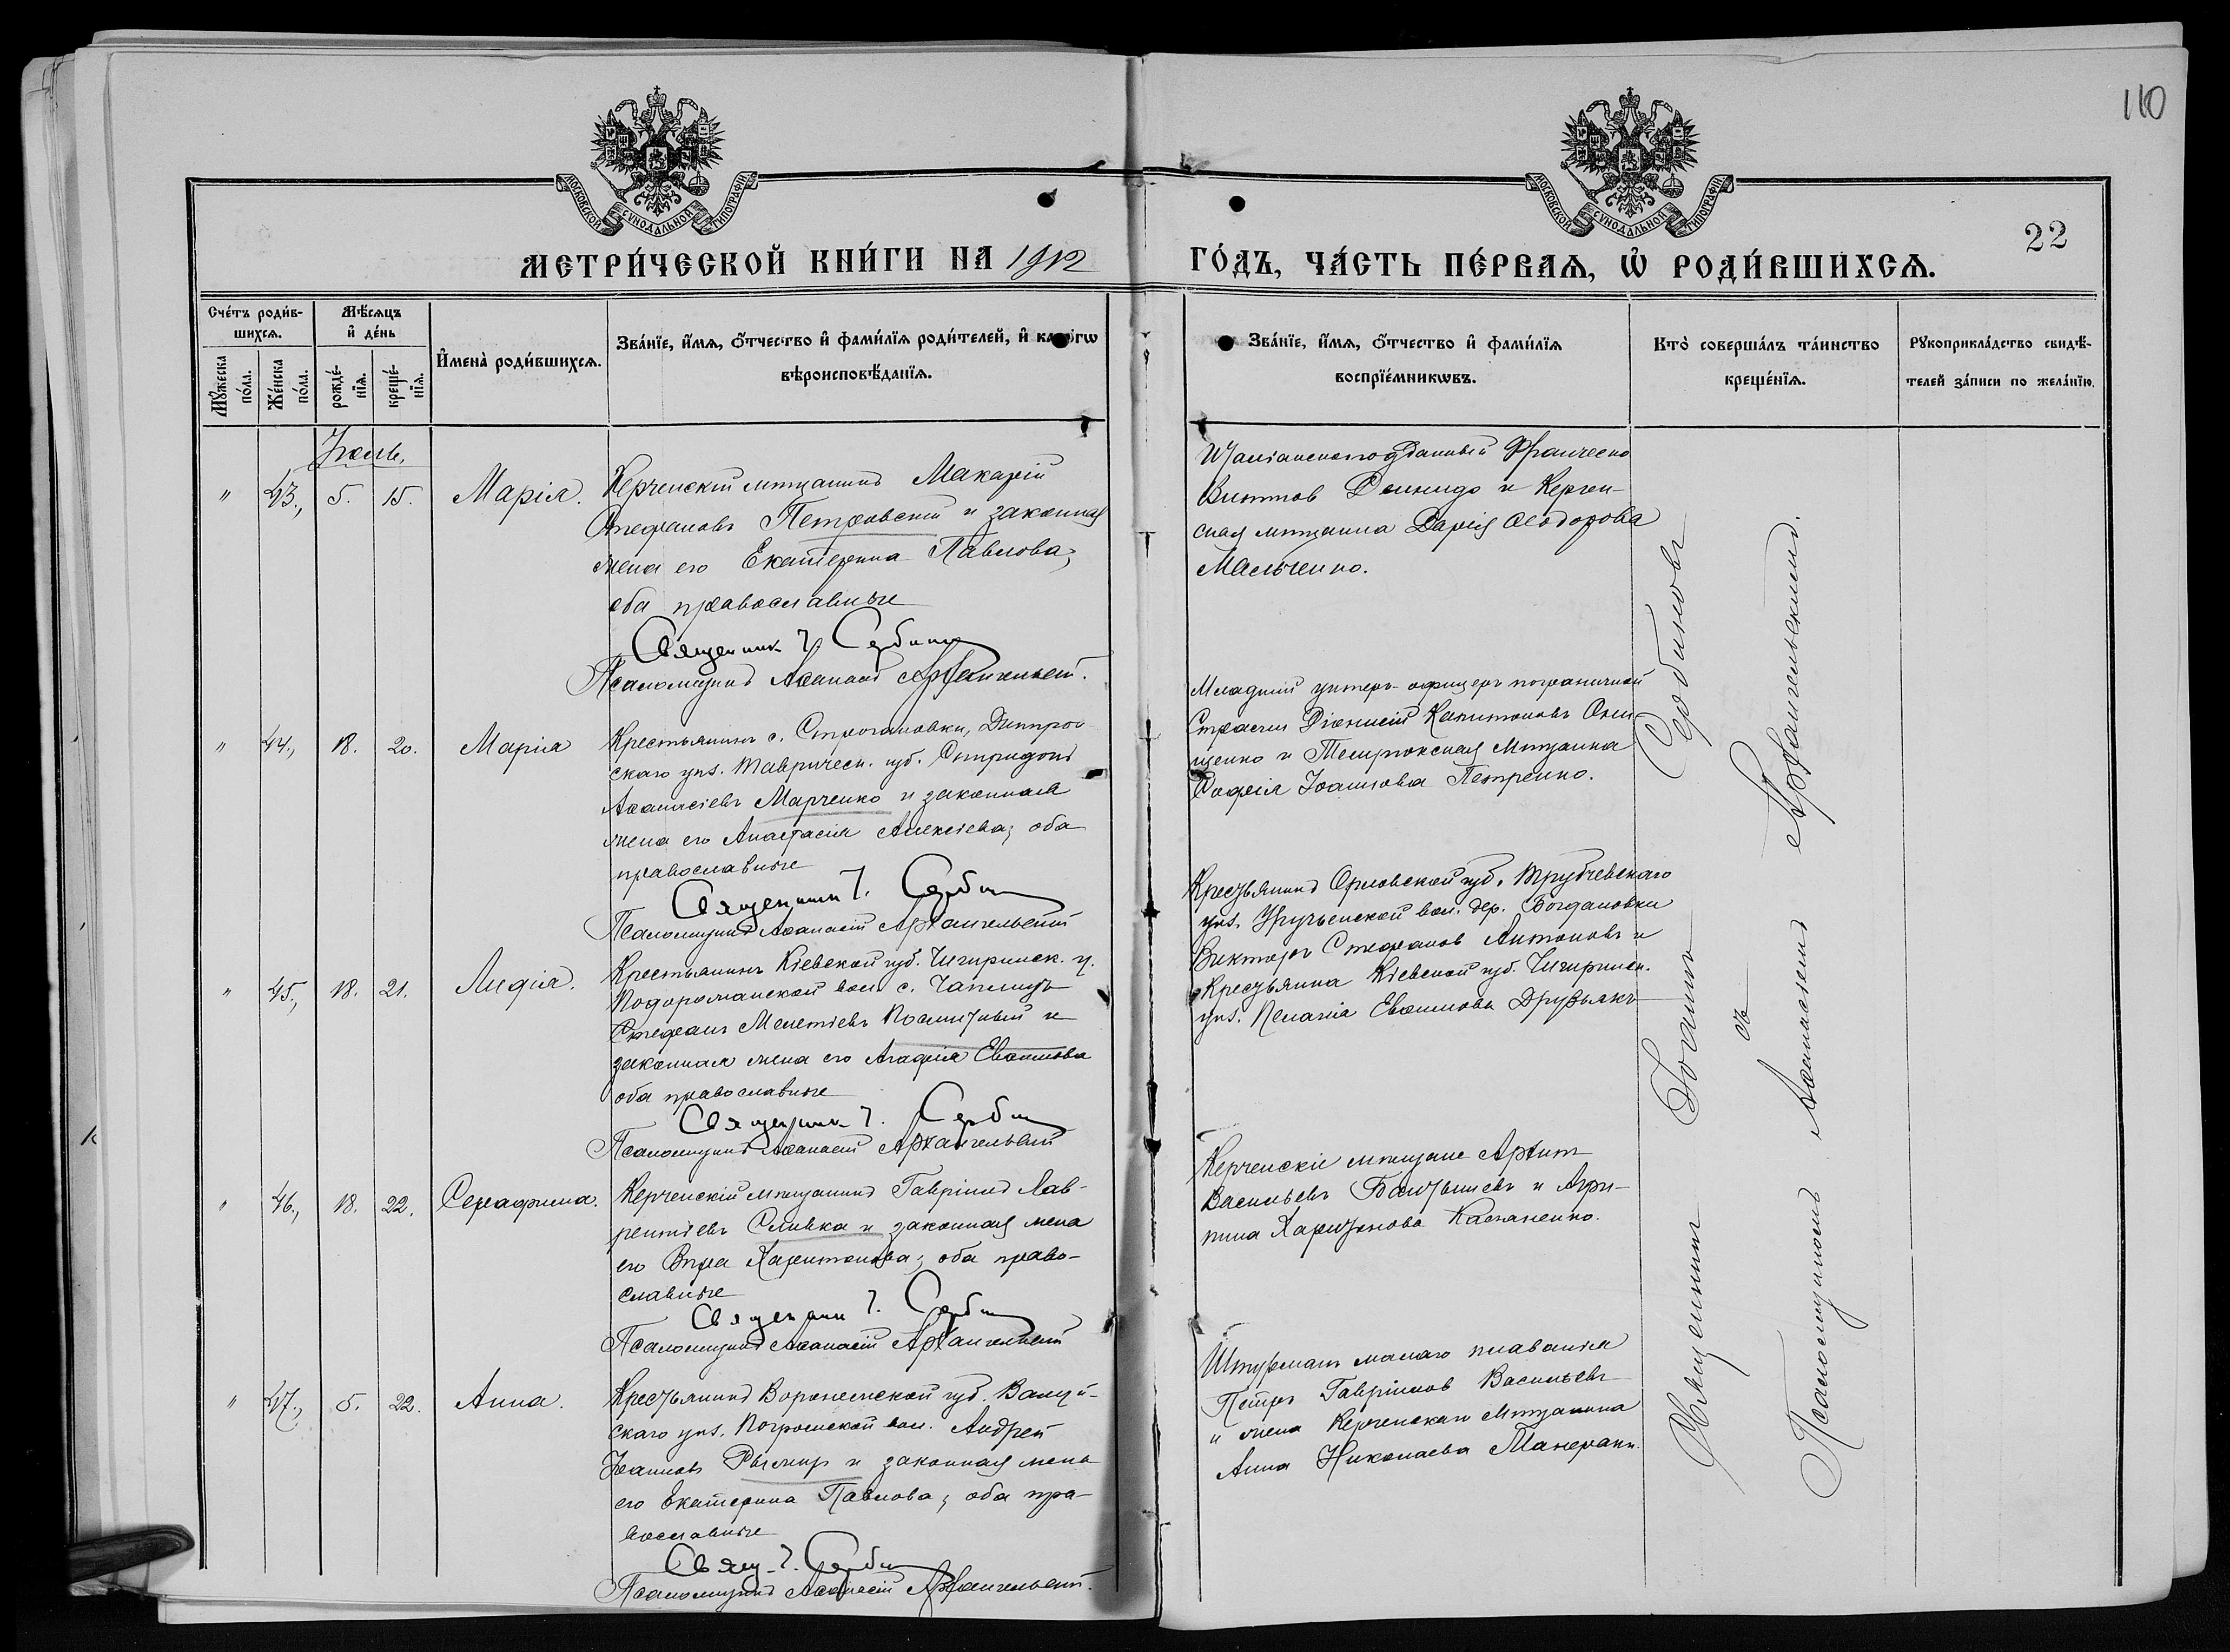 110
МОСКОВСКОЙ СУНОДАЛЬНОЙ ТИПОГРАФІИ
МОСКОВСКОЙ СУНОДАЛЬНОЙ ТИПОГРАФІИ
22
МЕТРИ́ЧЕСКОЙ КНИ́ГИ НА 1912
ГО́ДЪ, ЧА́СТЬ ПЕ́РВАѦ, Ѡ҆ РОДИ́ВШИХСѦ.
Сче́тъ роди́в-
шихсѧ.
Мꙋ́жеска по́ла.
Же́нска по́ла.
Мѣ́сѧцъ
и҆ де́нь
рожде́-
нїѧ.
креще́-
нїѧ.
И҆мена̀ роди́вшихсѧ.
Зва́нїе, и҆́мѧ, ѻ҆́тчество и҆ фами́лїѧ роди́телей, и҆ како́гѡ
вѣроисповѣ́данїѧ.
Зва́нїе, и҆́мѧ, ѻ҆́тчество и҆ фами́лїѧ
воспрїе́мникѡвъ.
Кто̀ соверша́лъ та́инство
креще́нїѧ.
Рꙋкоприкла́дство свидѣ́-
телей за́писи по жела́нїю.
Іюль.
" 43., 5. 15. Марія.
Керченскій мѣщанинъ Макарій
Стефановъ Петровскій и законная
жена его Екатерина Павлова,
оба православные
Священник І. Сербинов
Псаломщикъ Аѳанасій Архангельскій.
Италіанскоподданный Франческо
Виттов и Керчен-
ская мѣщанка Дарія Ѳеодорова
Мальченко.
" 44., 18. 20. Марія
Крестьянинъ с. Строгановки, Днѣпров-
скаго уѣз. Тавричесн. губ. Спиридонъ
Аѳанасіевъ Марченко и законная
жена его Анастасія Алексіева; оба
православные
Священник І. Сербинов
Псаломщикъ Аѳанасій Архангельскій
Младшій унтеръ-офицеръ пограничной
Стражи Діонисій Капитоновъ Они-
щенко и Темрюкская Мѣщанка
Софія Іоаннова Петренко.
" 45., 18. 21. Лидія.
Крестьянинъ Кіевской губ. Чигиринск. у.
Подорожанской вол. с.
Стефанъ Мелетіевъ и
законная жена его Агафія Евѳимова
оба православные
Священник І. Сербинов
Псаломщикъ Аѳанасій Архангельскій
Крестьянинъ Орловской губ. Трубчевскаго
уѣз. Уручьенской вол. дер. Богдановки
Викторъ Стефанов Антоновъ и
Крестьянка Кіевской губ. Чигиринск.
уѣз. Пелагія Евѳимова Друзьякъ
" 46., 18. 22. Серафима.
Керченскій мѣщанинъ Гавріилъ Лав-
рентіевъ Сливка и законная жена
его Вѣра Харитонова; оба право-
славные
Священник І. Сербинов
Псаломщикъ Аѳанасій Архангельскій
Керченскіе мѣщане
Васильевъ и Агри-
пина Харитонова Касяненко.
" 47., 5. 22. Анна.
Крестьянинъ Воронежской губ. Валуй-
скаго уѣз. Погромской вол. Андрей
Іоаннов и законная жена
его Екатерина Павлова; оба пра-
вославные
Свящ. І. Сербинов
Псаломщикъ Аѳанасій Архангельскій.
Штурманъ малаго плаванія
Петръ Гавріилов Васильевъ
и жена Керченскаго Мѣщанина
Анна Николаева
Священникъ Іоаннъ Сербиновъ
съ
Псаломщикомъ Аѳанасіемъ Архангельскимъ.